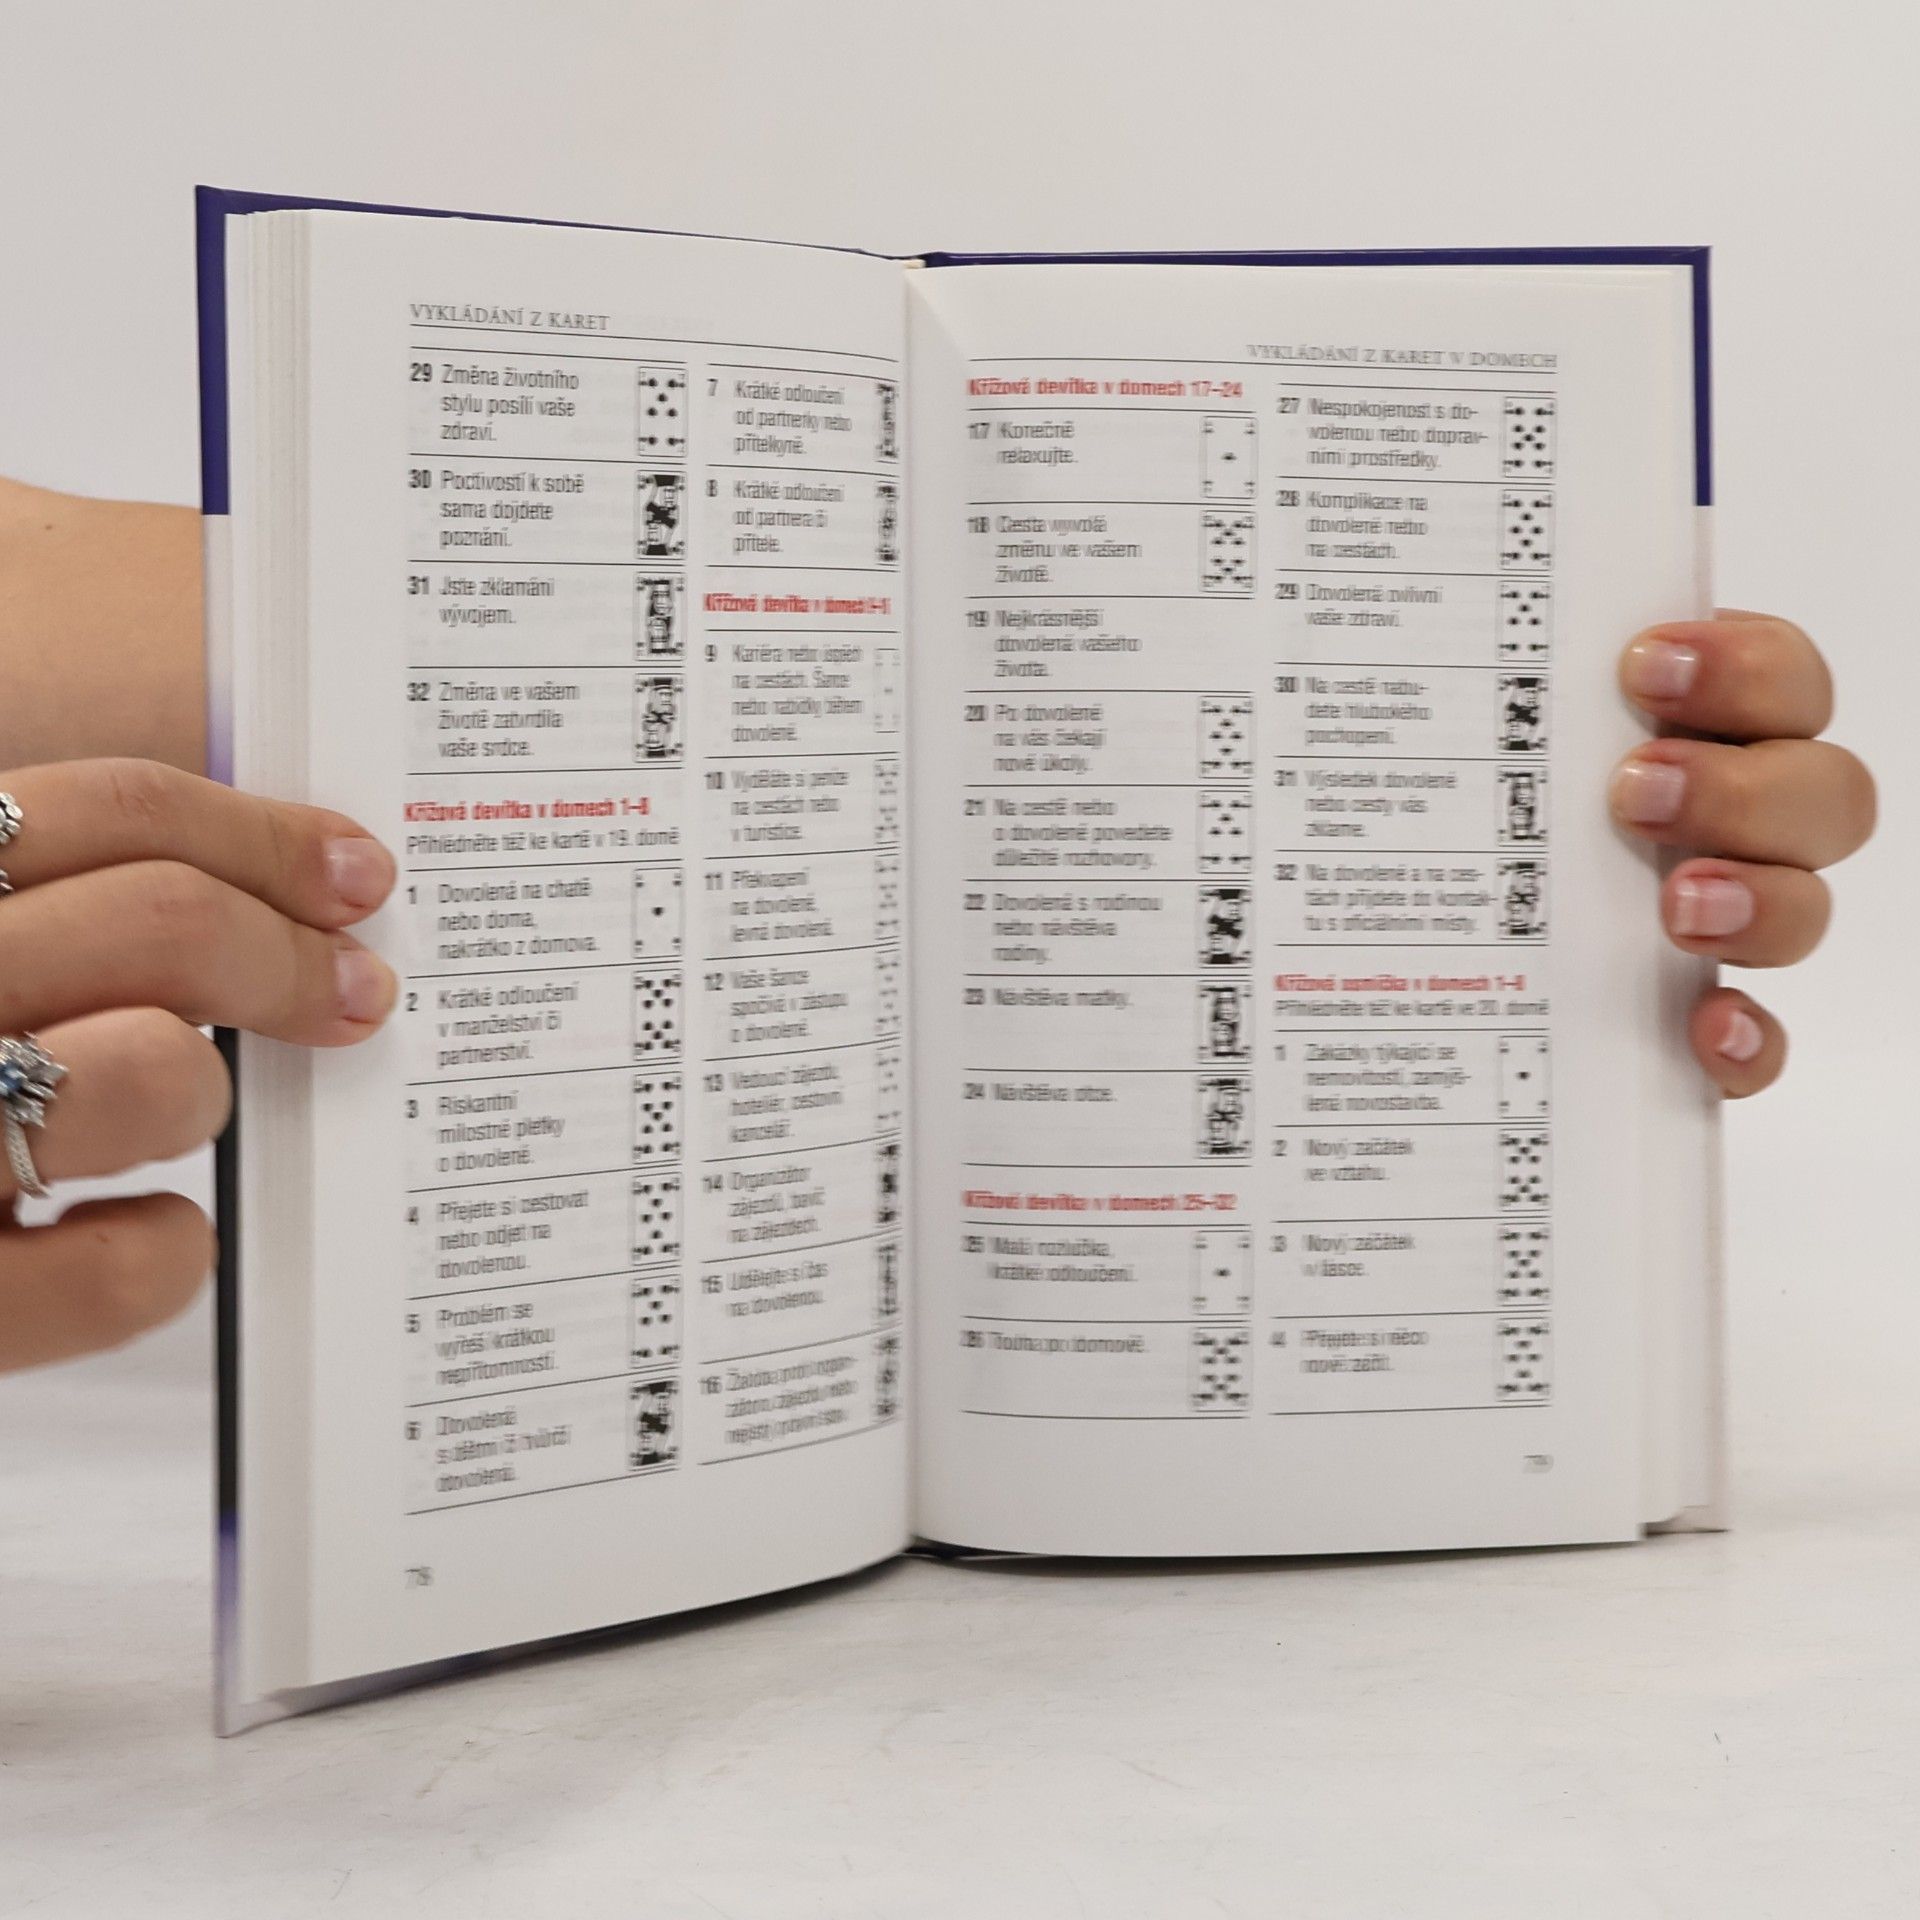 VYKLÁDÁNÍ Z KARET
29 Změna životního
stylu posílí vaše
zdraví.
30 Poctivostí k sobě
sama dojdete
poznání.
31 Jste zklamáni
vývojem.
32 Změna ve vašem
životě zatvrdila
vaše srdce.
Křížová devítka v domech 1–8
Přihlédněte též ke kartě v 19. domě
1 Dovolená na chatě
nebo doma,
nakrátko z domova.
2 Krátké odloučení
v manželství či
partnerství.
3 Riskantní
milostné pletky
o dovolené.
4 Přejete si cestovat
nebo odjet na
dovolenou.
5 Problém se
vyřeší krátkou
nepřítomností.
6 Dovolená
s dětmi či tvůrčí
dovolená.
78
7 Krátké odloučení
od partnerky nebo
přítelkyně.
8 Krátké odloučení
od partnera či
přítele.
Křížová devítka v domech
9 Kariéra nebo úspěch
na cestách. Šance
nebo nabídky během
dovolené.
10 Vyděláte si peníze
na cestách nebo
v turistice.
11 Překvapení
na dovolené,
levná dovolená.
12 Vaše šance
spočívá v zástupu
o dovolené.
13 Vedoucí zájezdu,
hoteliér, cestovní
kancelář.
14 Organizátor
zájezdů, bavič
na zájezdech.
15 Udělejte si čas
na dovolenou.
16 Žaloba proti
VYKLÁDÁNÍ Z KARET V DOMECH
Křížová devítka v domech 17–24
17 Konečně
relaxujte.
18 Cesta vyvolá
změnu ve vašem
životě.
19 Nejkrásnější
dovolená vašeho
života.
20 Po dovolené
na vás čekají
nové úkoly.
21 Na cestě nebo
o dovolené povedete
důležité rozhovory.
22 Dovolená s rodinou
nebo návštěva
rodiny.
23 Návštěva matky.
24 Návštěva otce.
Křížová devítka v domech 25–32
25 Malá rozlučka,
krátké odloučení.
26 Touha po domově.
27 Nespokojenost s do-
volenou nebo doprav-
ními prostředky.
28 Komplikace na
dovolené nebo
na cestách.
29 Dovolená ovlivní
vaše zdraví.
30 Na cestě nabu-
dete hlubokého
pochopení.
31 Výsledek dovolené
nebo cesty vás
zklame.
32 Na dovolené a na ces-
tách přijdete do kontak-
tu s oficiálními místy.
Křížová osmička v domech 1–8
Přihlédněte též ke kartě ve 20. domě
1 Zakázky týkající se
nemovitostí, zamýš-
lená novostavba.
2 Nový začátek
ve vztahu.
3 Nový začátek
v lásce.
4 Přejete si něco
nově začít.
79